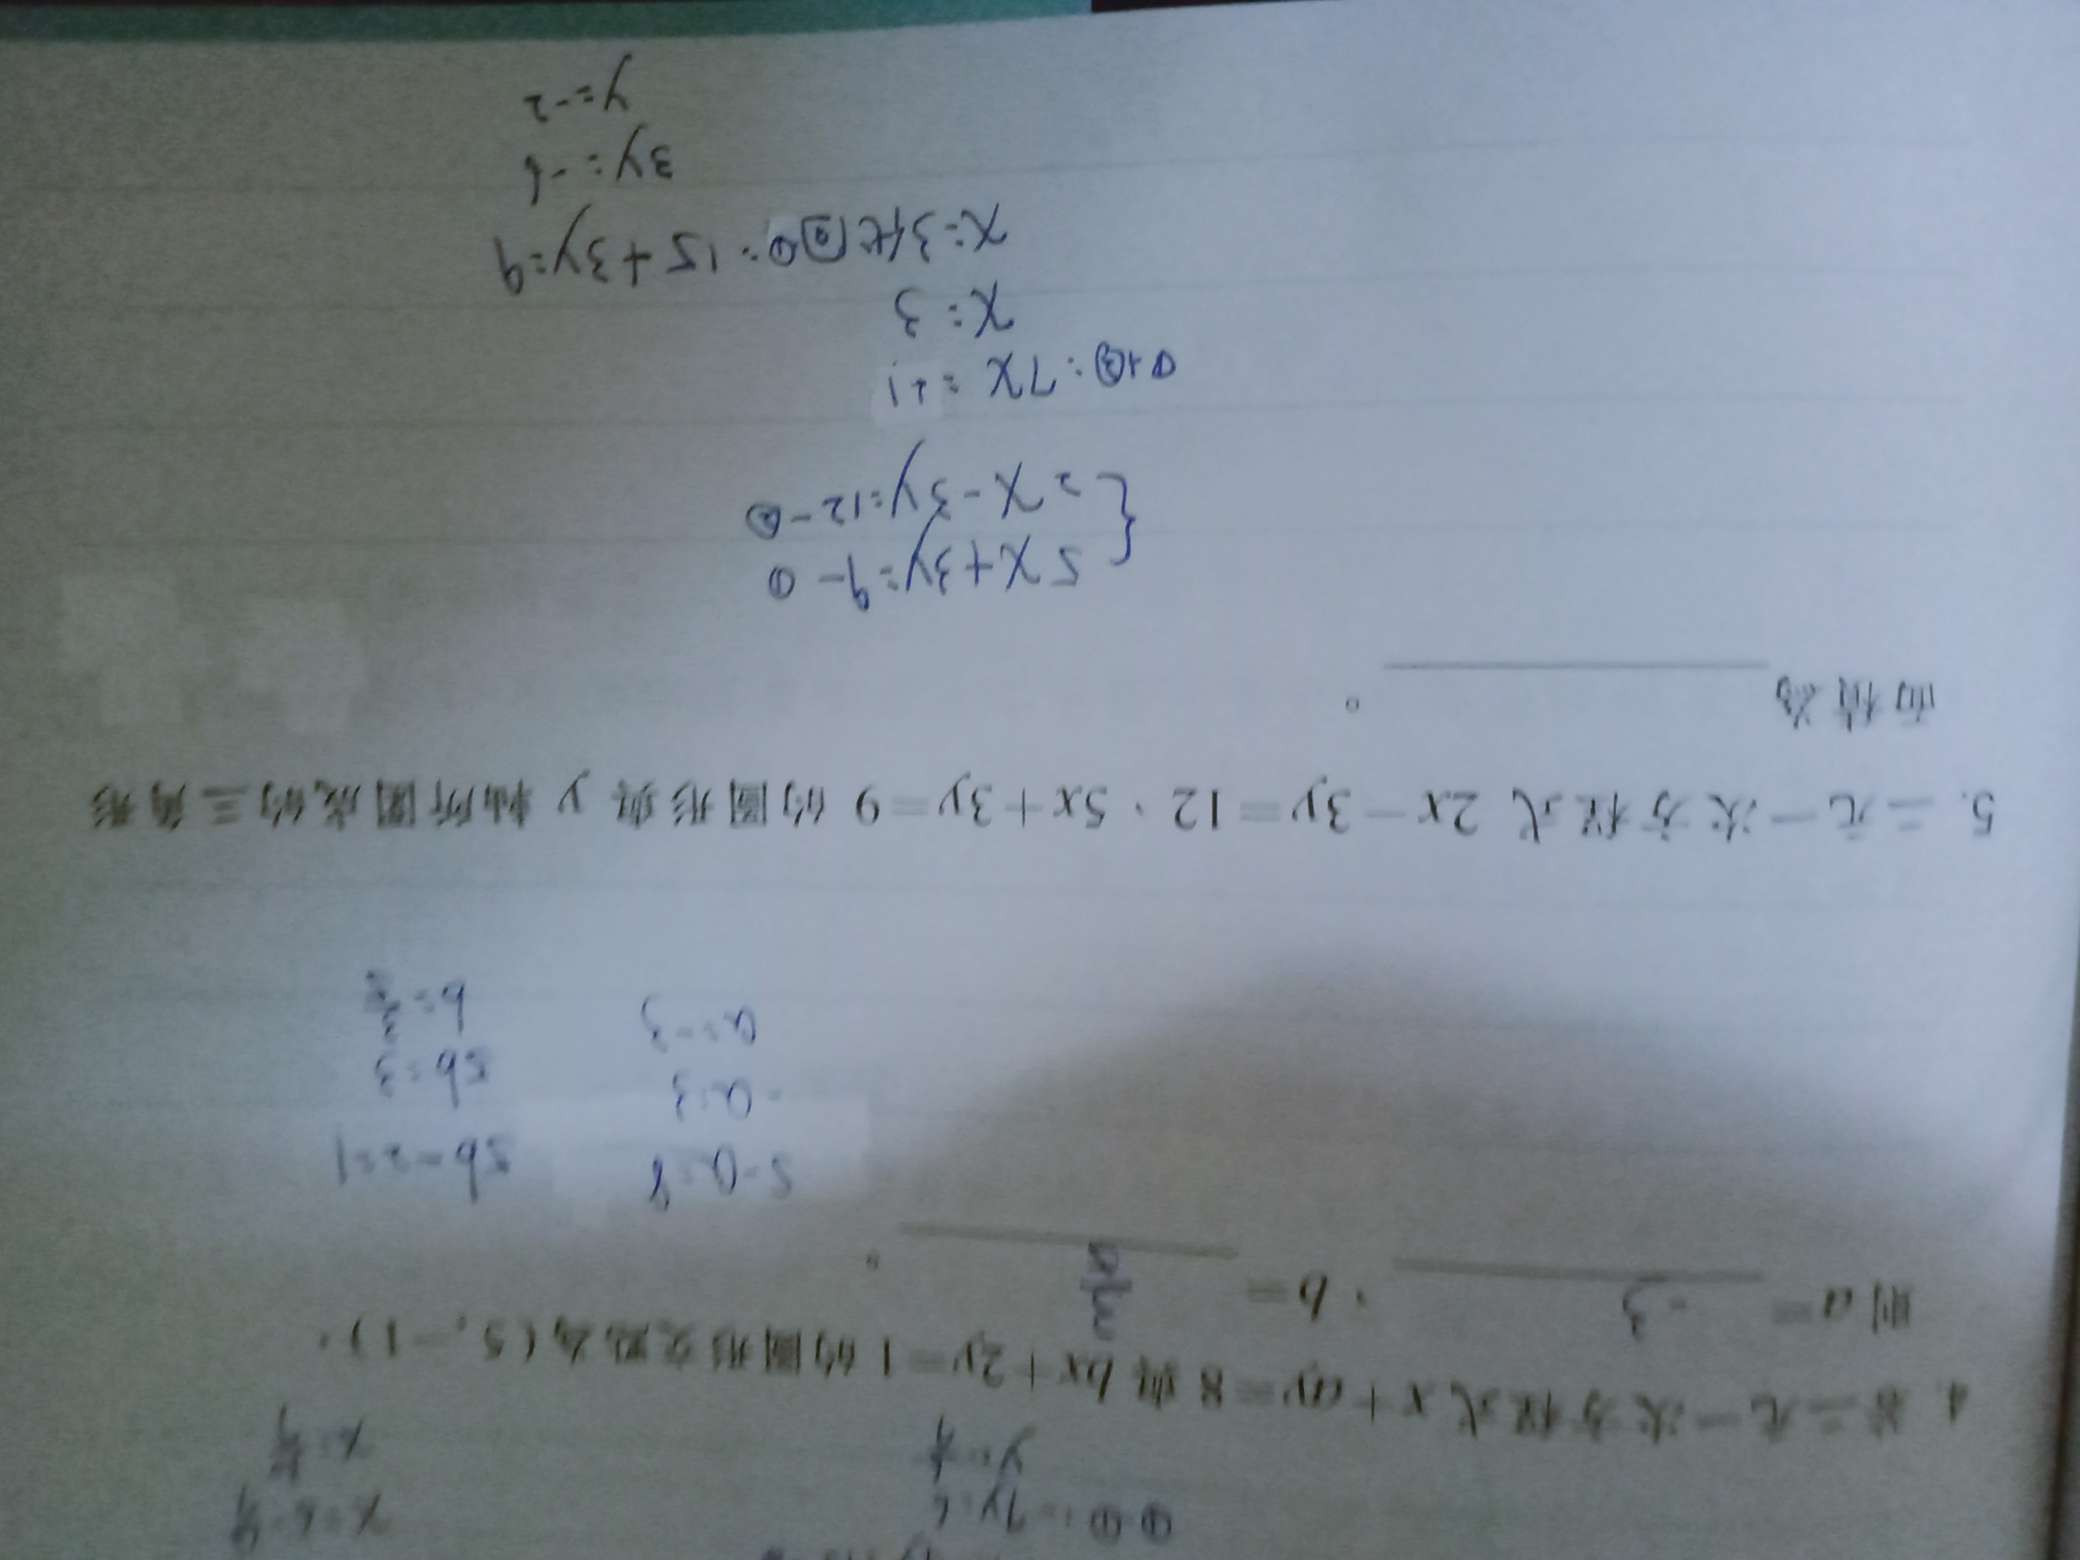 x=6-4
①-②:-7y=6
4. 若二元一次方程式 x+ay=8 與 bx+2y=1 的圖形交點為(5,-1),
則 a= -3 、b= 3/5 。
5-a=8 5b-2=1
-a=3 5b=3
a=-3 b=3/5
5. 二元一次方程式 2x-3y=12、5x+3y=9 的圖形與 y 軸所圍成的三角形
面積為 。
{5x+3y=9-①
2x-3y=12-②
①+②:7x=21
x=3
x=3代回①:15+3y=9
3y=-6
y=-2